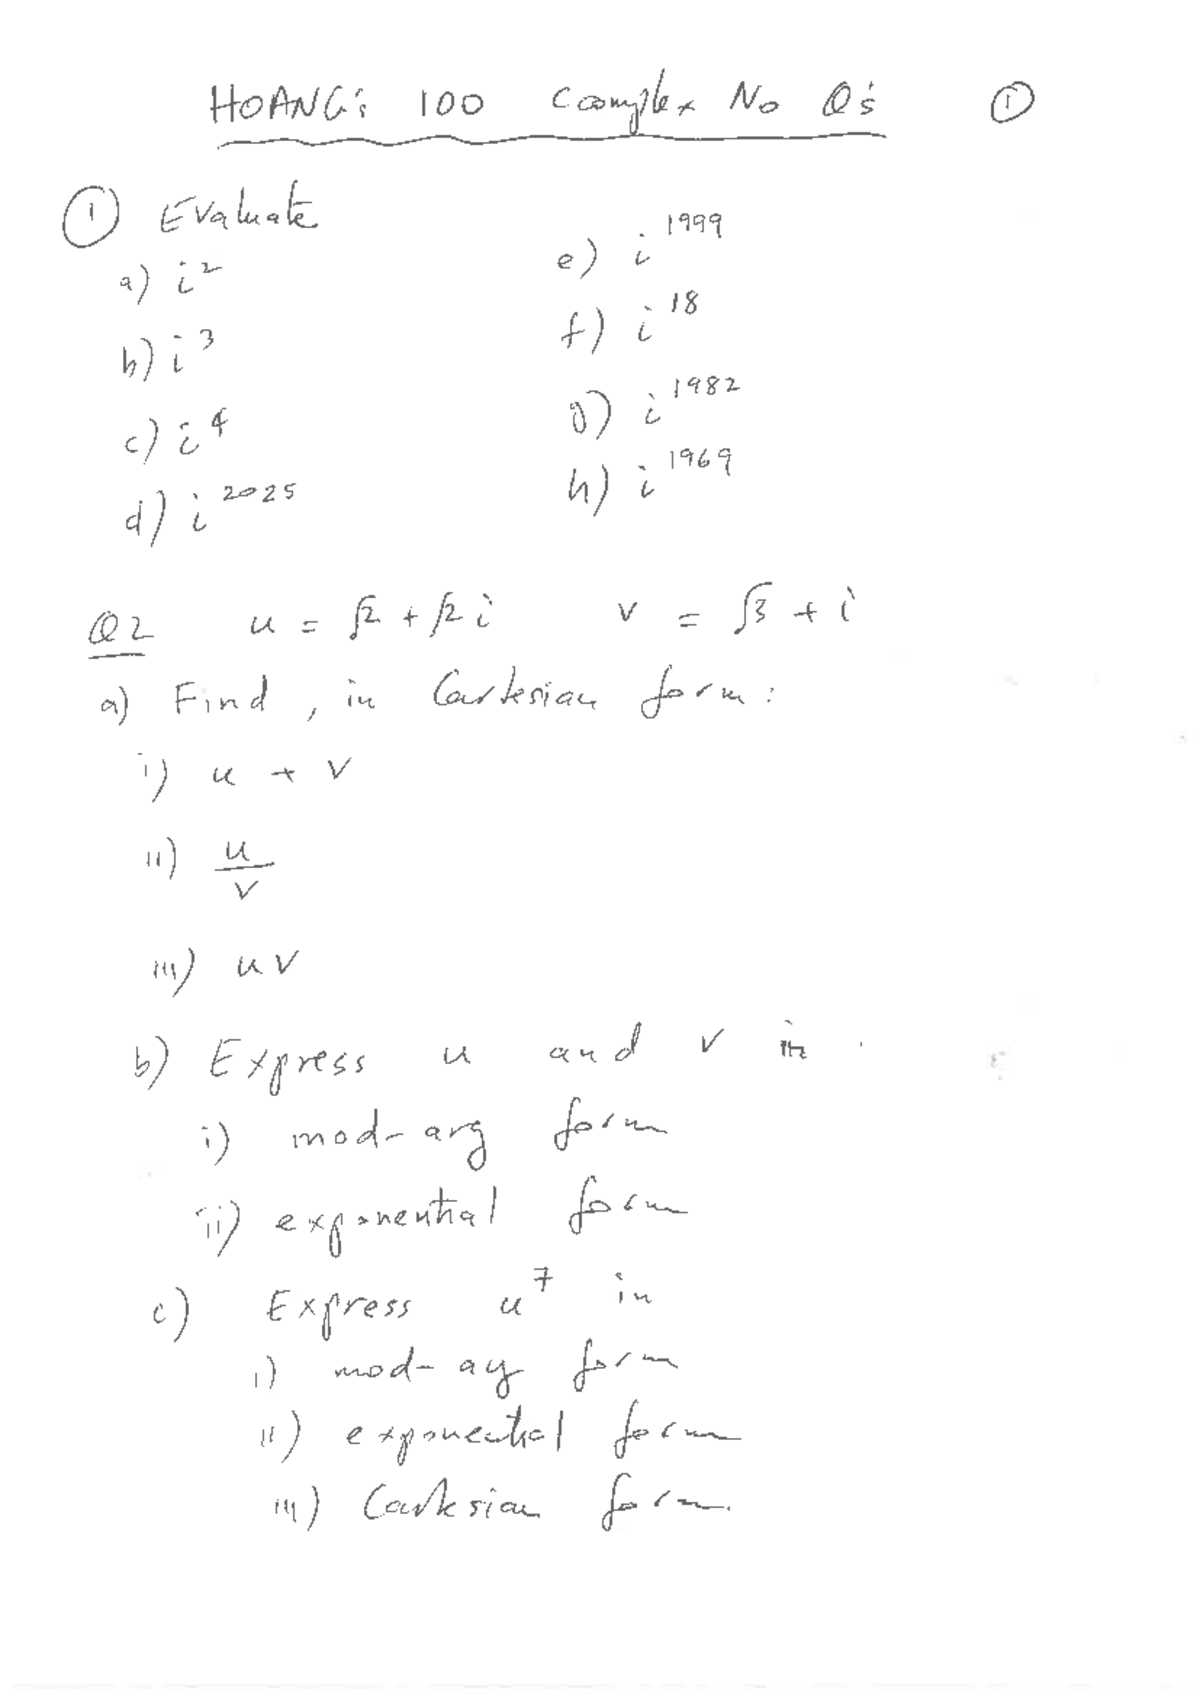 HOANG's 100 Complex No Q's ①
① Evaluate
a) i²
b) i³
c) i⁴
d) i²⁰²⁵
e) i¹⁹⁹⁹
f) i¹⁸
g) i¹⁹⁸²
h) i¹⁹⁶⁹
Q2 u = √2 + √2 i v = √3 + i
a) Find, in Cartesian form:
i) u + v
ii) u/v
iii) uv
b) Express u and v in.
i) mod-arg form
ii) exponential form
c) Express u⁷ in
i) mod-arg form
ii) exponential form
iii) Cartesian form.